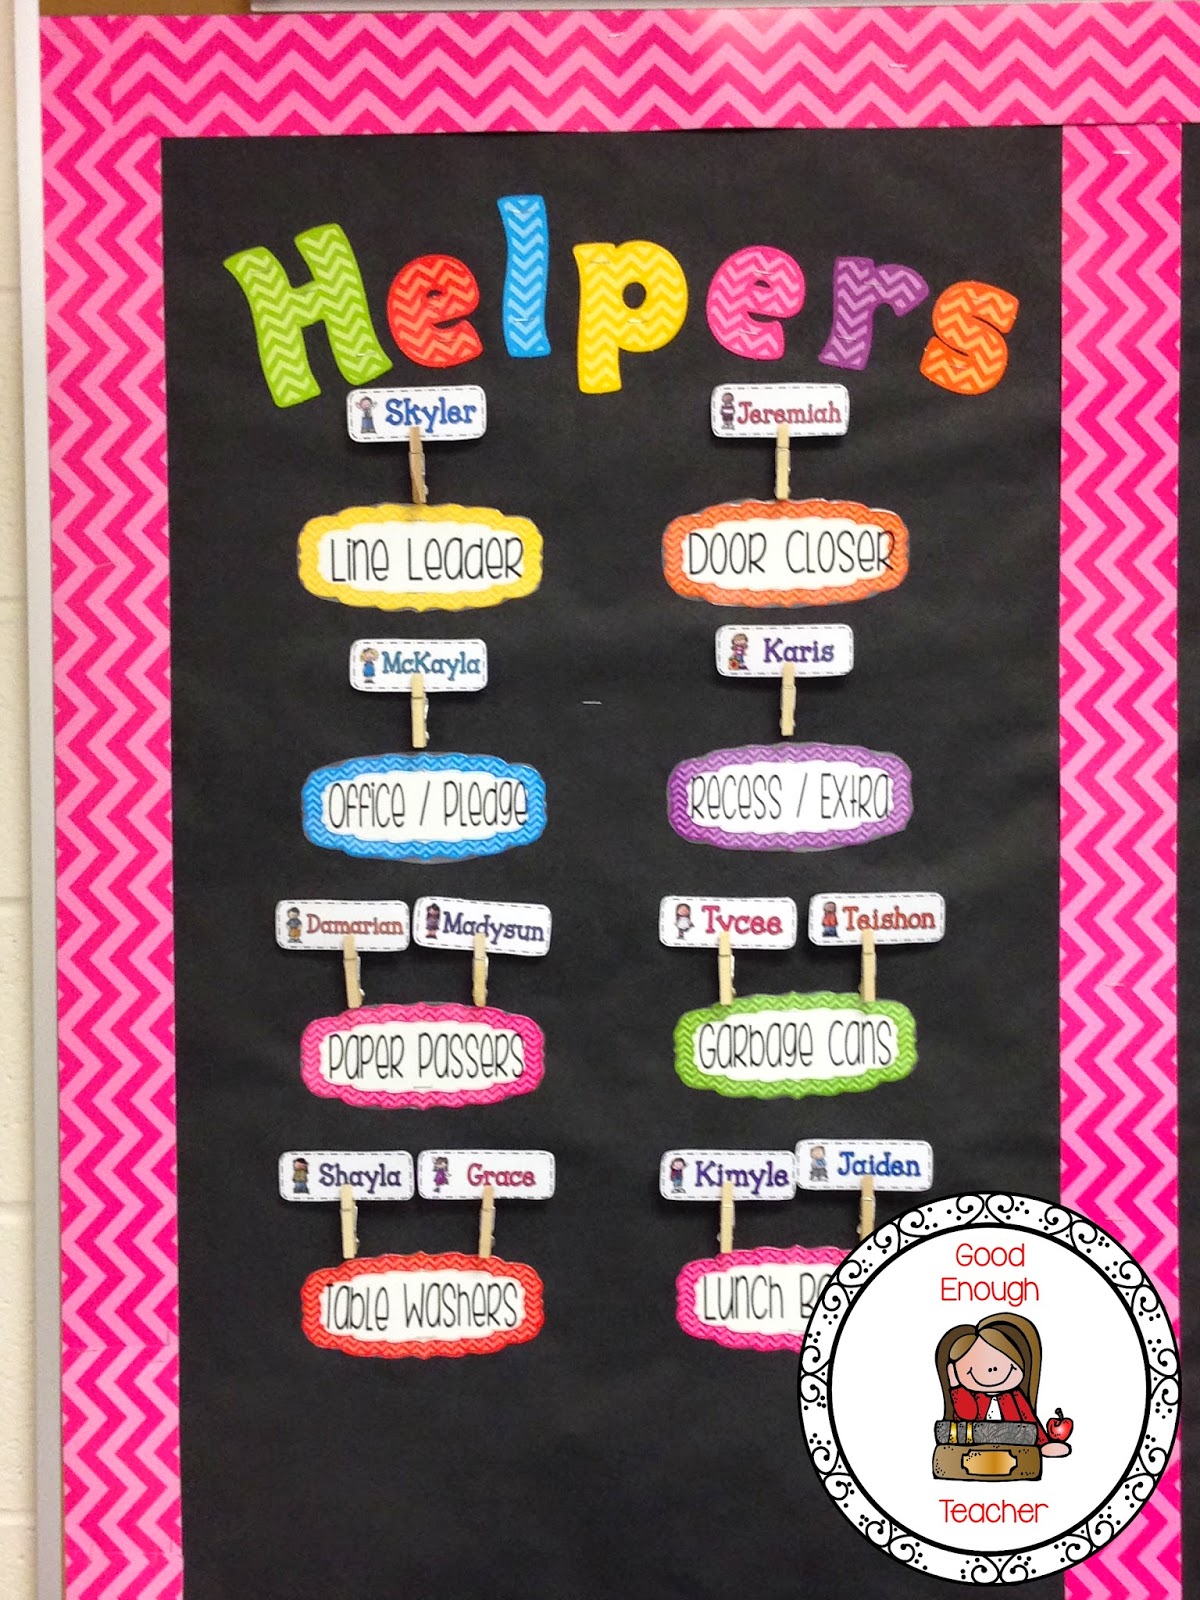 Helpers
Skyler
Jeremiah
Line Leader
Door Closer
McKayla
Karis
Office / Pledge
Recess / Extra
Damarian Madysun
Tycee Teishon
Paper Passers
Garbage Cans
Shayla Grace
Kimyle Jaiden
Table Washers
Lunch
Good
Enough
Teacher